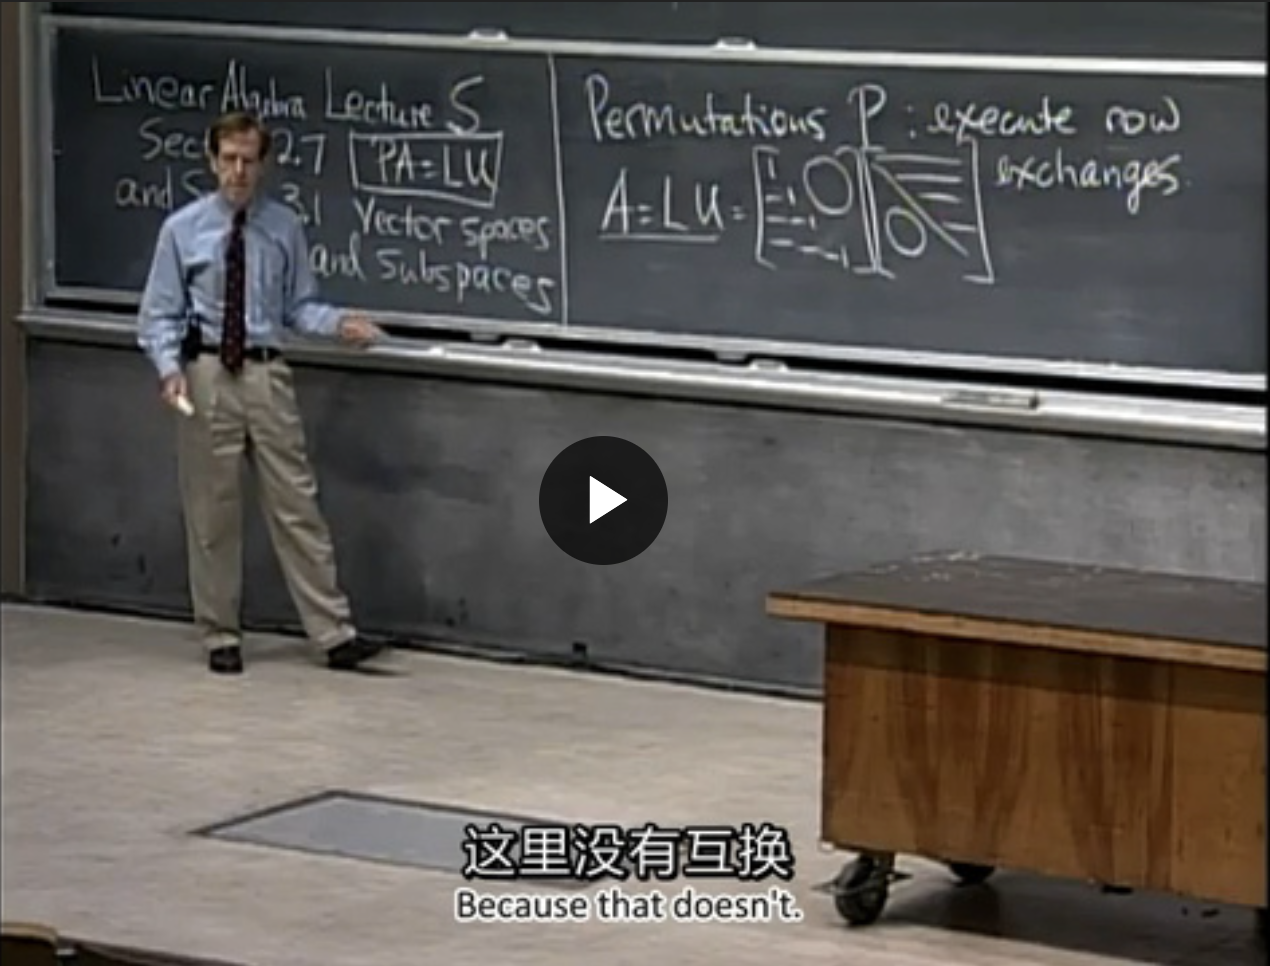 Linear Algebra Lecture 5
Sec 2.7 PA=LU
and S 3.1 Vector spaces
and Subspaces
Permutations P : execute row
exchanges.
A=LU=
这里没有互换
Because that doesn't.